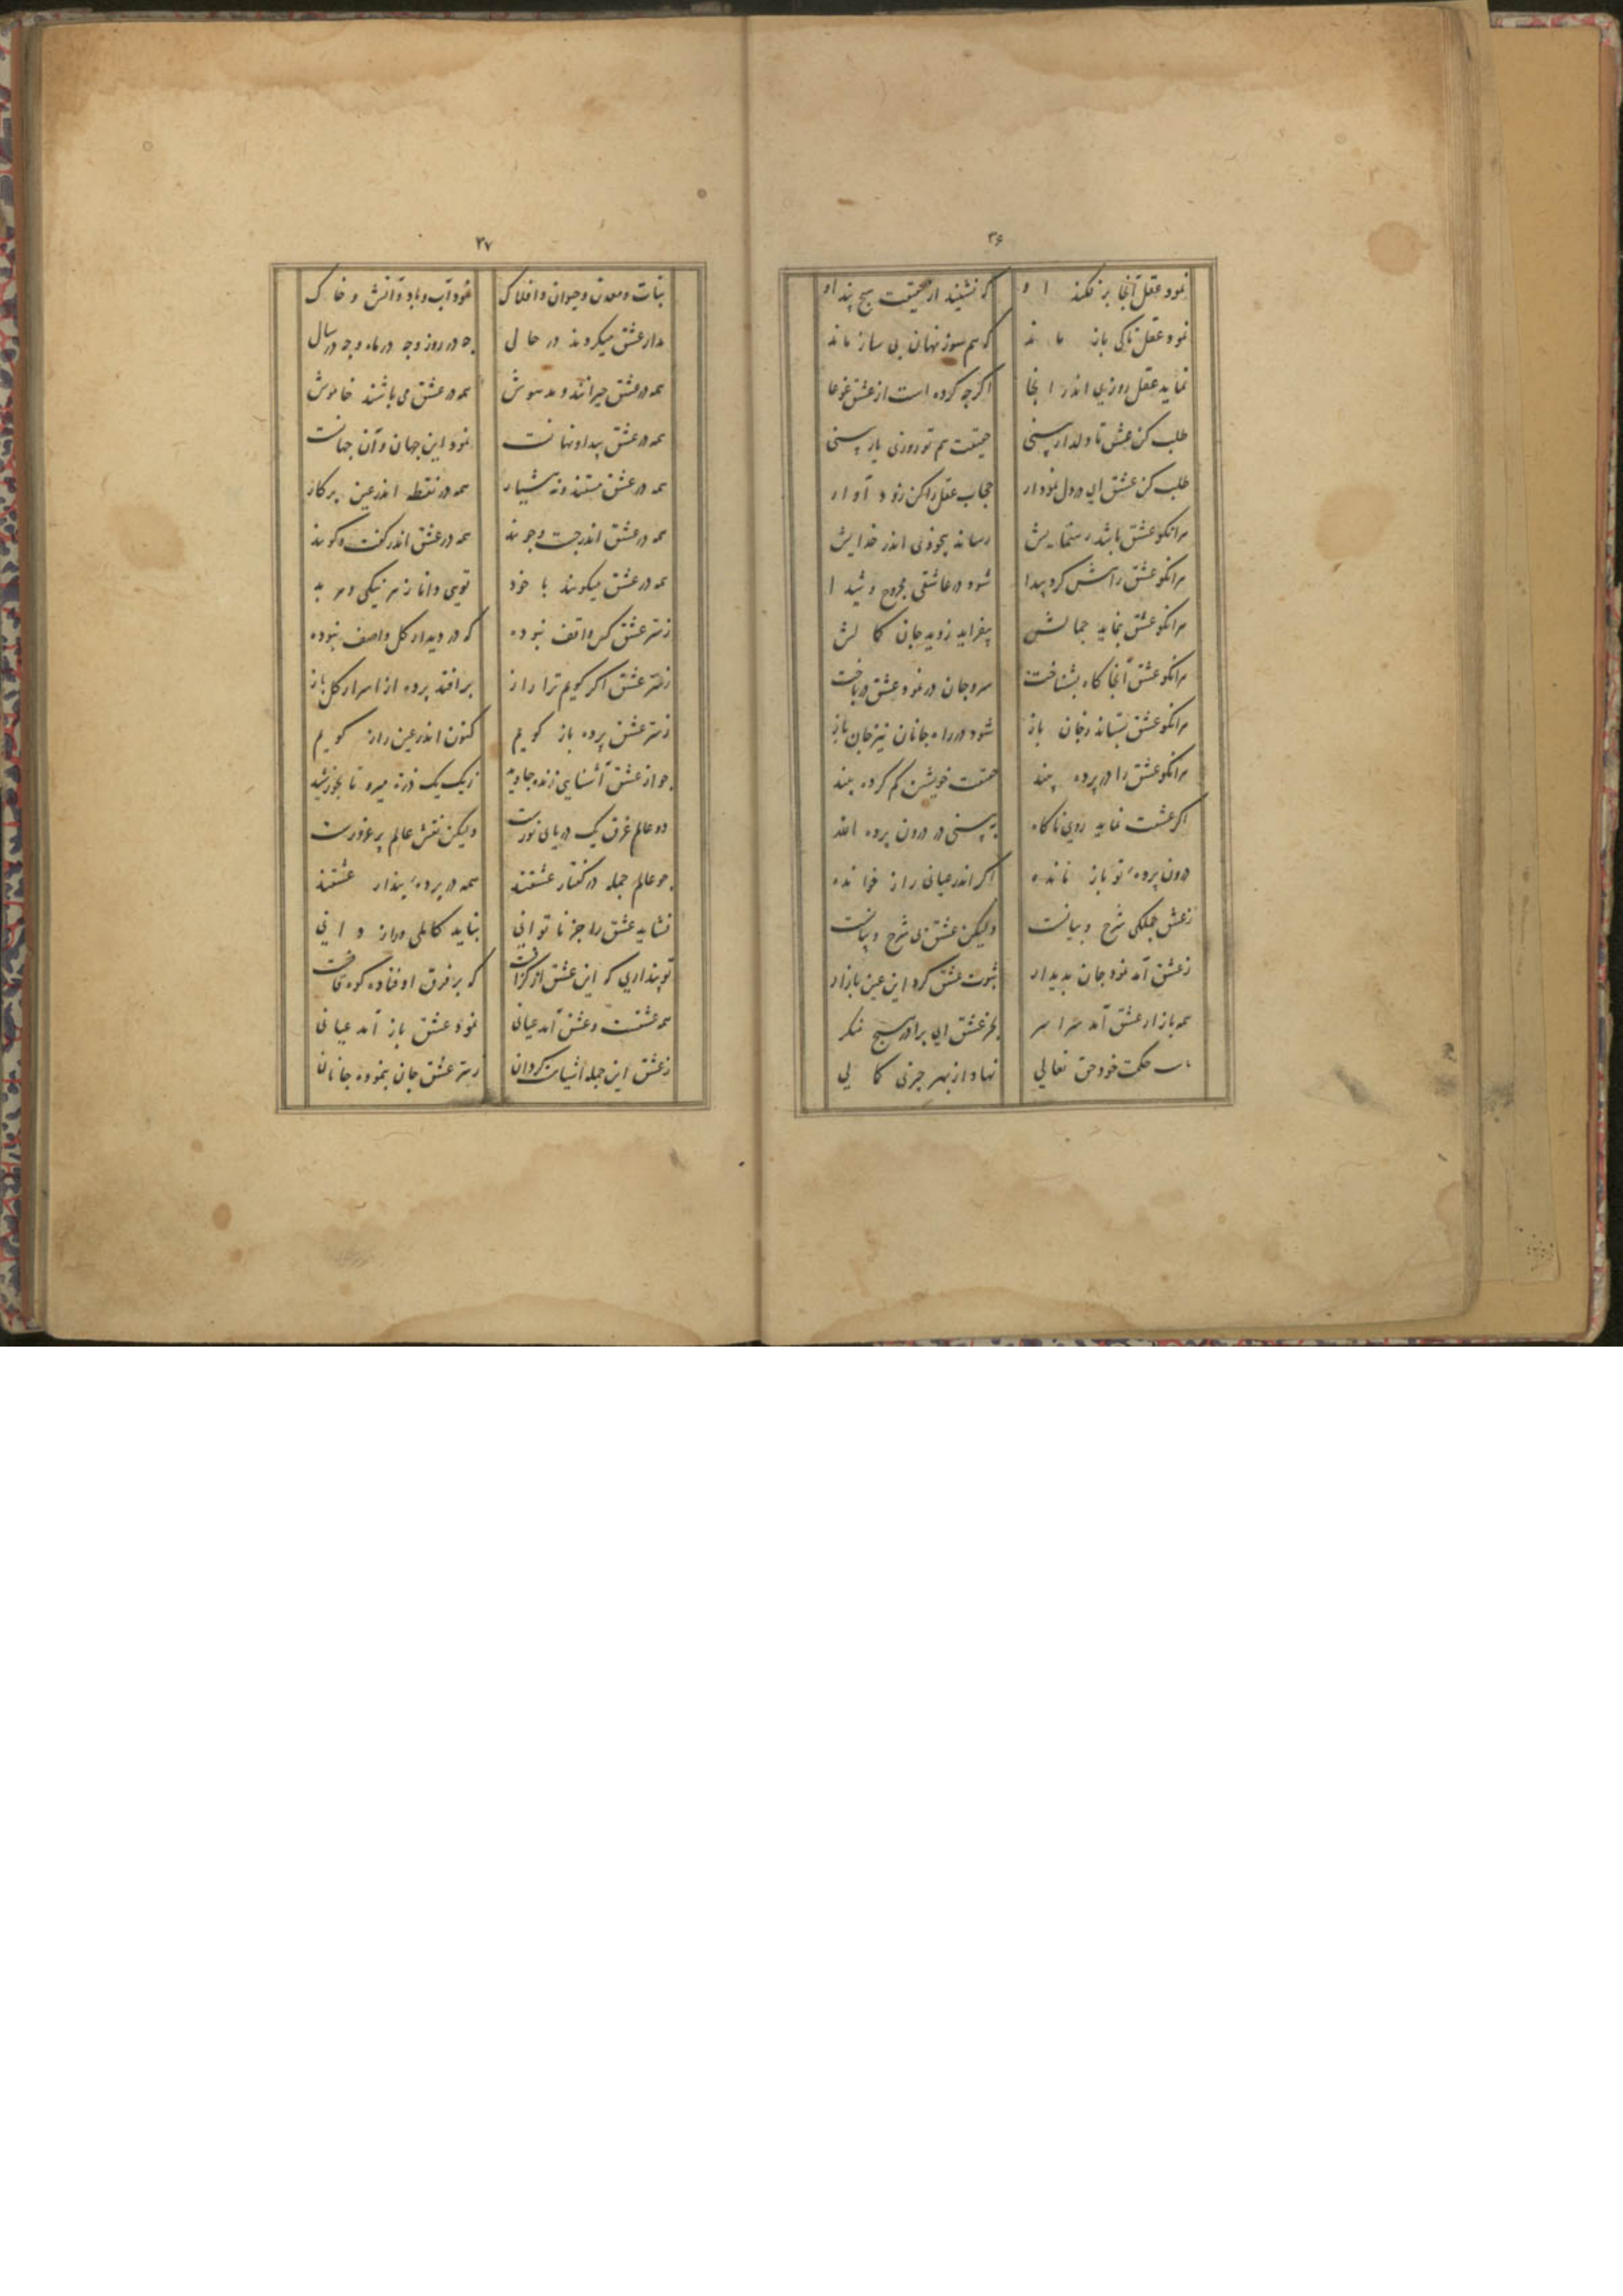 ۳۶
نمود عقل آنجا بر فکند او که نشنید از حقیقت هیچ پند او
نمود عقل تاکی باز ماند که هم سوز نهان بی ساز ماند
نماید عقل روزی اندر اینجا اگرچه کرده است از عشق غوغا
طلب کن عشق تا دلدار بینی حقیقت هم تو روزی یار بینی
طلب کن عشق ای در دل نمودار حجاب عقل را کن زود آوار
هرانکو عشق باشد رهنمایش رساند بیخودی اندر خدایش
هرانکو عشق رازش کرد پیدا شود در عاشقی مجروح و شیدا
هرانکو عشق بنماید جمالش بیفزاید ز دید جان کمالش
هرانکو عشق آنجا گاه بشناخت سر و جان در نمود عشق در باخت
هرانکو عشق بستاند ز جان باز شود در راه جانان نیز جان باز
هرانکو عشق را در پرده بیند حقیقت خویشتن گم کرده بیند
اگر عشقت نماید روی ناگاه به بینی در درون پرده الله
درون پرده تو باز مانده اگر اندر عیانی راز خوانده
ز عشق جملگی شرح و بیانست ولیکن عشق بی شرح و بیانست
ز عشق آمد نمود جان پدیدار ثبوت عشق کرد این عین بازار
همه بازار عشق آمد سراسر بجز عشق ای برادر هیچ منگر
حکمت خود حق تعالی نهاد از بهر چیزی
۳۷
نبات و معدن و حیوان و افلاک نمود آب و باد و آتش و خاک
مدار عشق میگردند در حال چه در روز و چه در ماه و چه در سال
همه در عشق حیرانند و مدهوش همه در عشق می باشند خاموش
همه در عشق پیدا و نهانست نمود این جهان و آن جهانست
همه در عشق مستند و نه هشیار همه در نقطه اندر عین پرکار
همه در عشق اندر جست و جویند همه در عشق اندر گفت و گویند
همه در عشق میگویند با خود تویی دانا ز سر نیکی و هر بد
ز سر عشق کس واقف نبوده که در دیدار کل واصف نبوده
ز سر عشق اگر گویم ترا راز برافتد پرده از اسرار کل باز
ز سر عشق پرده باز گویم کنون اندر عین راز گویم
چو از عشق آشنایی زنده جاوید ز یک یک ذره میرو تا بخورشید
دو عالم غرق یک دریای نورست ولیکن نقش عالم پر غرورست
چو عالم جمله در گفتار عشقند همه در پرده پندار عشقند
نشاید عشق را جز ناتوانی بباید کاملی و راز دانی
تو پنداری که این عشق از گزافست که بر فرق اوفتاده کوه قافست
همه عشقست و عشق آمد عیانی نمود عشق باز آمد عیانی
ز عشق این جمله اشیاست گردان ز سر عشق جان بنموده جانان